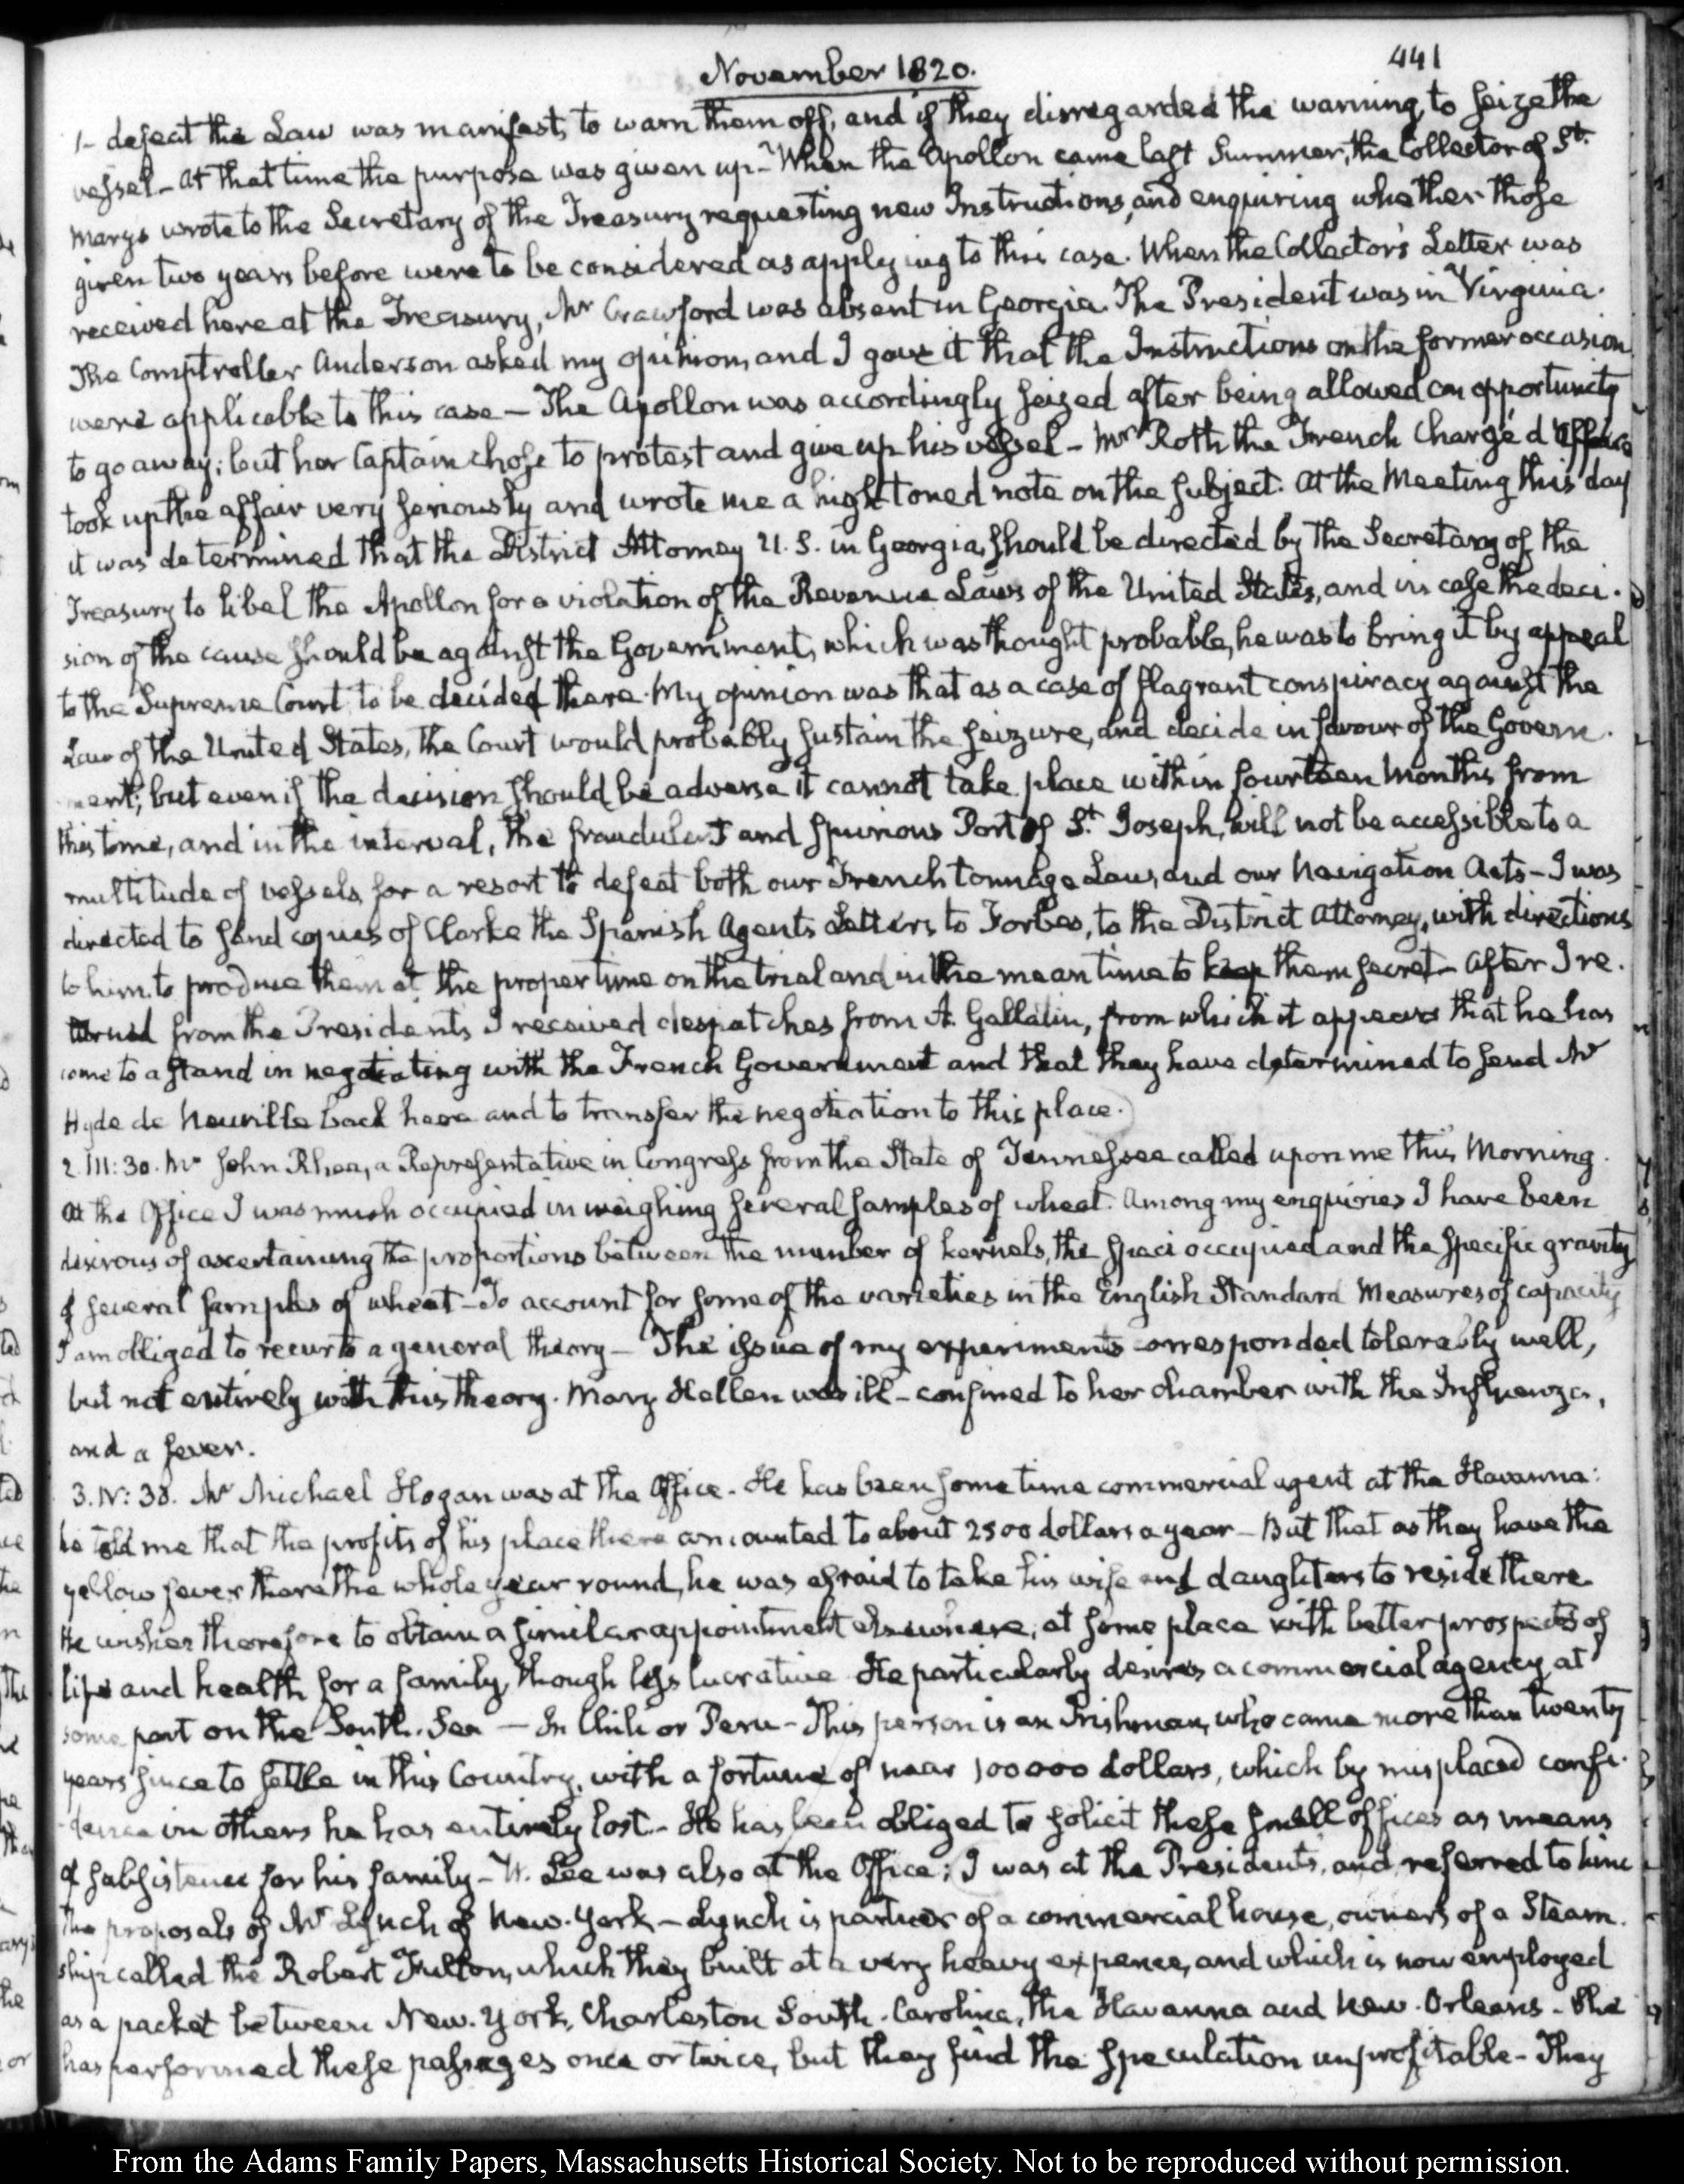 November 1820.
441
1- defeat the Law was manifest, to warn them off, and if they disregarded the warning, to seize the
vessel_ At that time the purpose was given up_ When the Apollon came last Summer, the Collector of St.
Marys wrote to the Secretary of the Treasury requesting new Instructions, and enquiring whether those
given two years before were to be considered as applying to this case. When the Collector's Letter was
received here at the Treasury, Mr Crawford was absent in Georgia. The President was in Virginia.
The Comptroller Anderson asked my opinion, and I gave it that the Instructions on the former occasion
were applicable to this case — The Apollon was accordingly seized after being allowed an opportunity
to go away; but her Captain chose to protest and give up his vessel - Mr Roth the French Chargé d'Affaires
took up the affair very seriously and wrote me a high toned note on the subject. At the Meeting this day
it was determined that the District Attorney U.S. in Georgia, should be directed by the Secretary of the
Treasury to libel the Apollon for a violation of the Revenue Laws of the United States, and in case the deci-
sion of the cause should be against the Government, which was thought probable, he was to bring it by appeal
to the Supreme Court to be decided there. My opinion was that as a case of flagrant conspiracy against the
Law of the United States, the Court would probably sustain the seizure, and decide in favour of the Govern-
ment; but even if the decision should be adverse it cannot take place within fourteen Months from
this time, and in the interval, the fraudulent and spurious Port of St. Joseph, will not be accessible to a
multitude of vessels for a resort to defeat both our French tonnage Law, and our Navigation Acts - I was
directed to send copies of Clarke the Spanish Agents Letters to Forbes, to the District Attorney, with directions
to him to produce them at the proper time on the trial and in the mean time to keep them secret - After I re-
turned from the Presidents I received despatches from A. Gallatin, from which it appears that he has
come to a stand in negotiating with the French Government and that they have determined to send Mr
Hyde de Neuville back here and to transfer the negotiation to this place.
2. III:30. Mr John Rhea, a Representative in Congress from the State of Tennessee called upon me this Morning.
At the Office I was much occupied in weighing several samples of wheat. Among my enquiries I have been
desirous of ascertaining the proportions between the number of kernels, the space occupied and the specific gravity
of several samples of wheat - To account for some of the varieties in the English Standard Measures of capacity
I am obliged to recur to a general theory — The issue of my experiments corresponded tolerably well,
but not entirely with this theory. Mary Hellen was ill - confined to her chamber with the Influenza,
and a fever.
3. IV:30. Mr Michael Hogan was at the Office. He has been some time commercial agent at the Havanna:
he told me that the profits of his place there amounted to about 2500 dollars a year - But that as they have the
yellow fever there the whole year round, he was afraid to take his wife and daughters to reside there.
He wishes therefore to obtain a similar appointment elsewhere, at some place with better prospects of
life and health for a family, though less lucrative He particularly desires a commercial agency at
some port on the South-Sea — In Chili or Peru - This person is an Irishman, who came more than twenty
years since to settle in this Country, with a fortune of near 100000 dollars, which by misplaced confi-
dence in others he has entirely lost.- He has been obliged to solicit these small offices as means
of subsistence for his family - W. Lee was also at the Office; I was at the Presidents, and referred to him
the proposals of Mr Lynch of New-York — Lynch is partner of a commercial house, owners of a Steam-
ship called the Robert Fulton, which they built at a very heavy expence, and which is now employed
as a packet between New-York, Charleston South-Carolina, the Havanna and New-Orleans - She
has performed these passages once or twice, but they find the speculation unprofitable - They
From the Adams Family Papers, Massachusetts Historical Society. Not to be reproduced without permission.